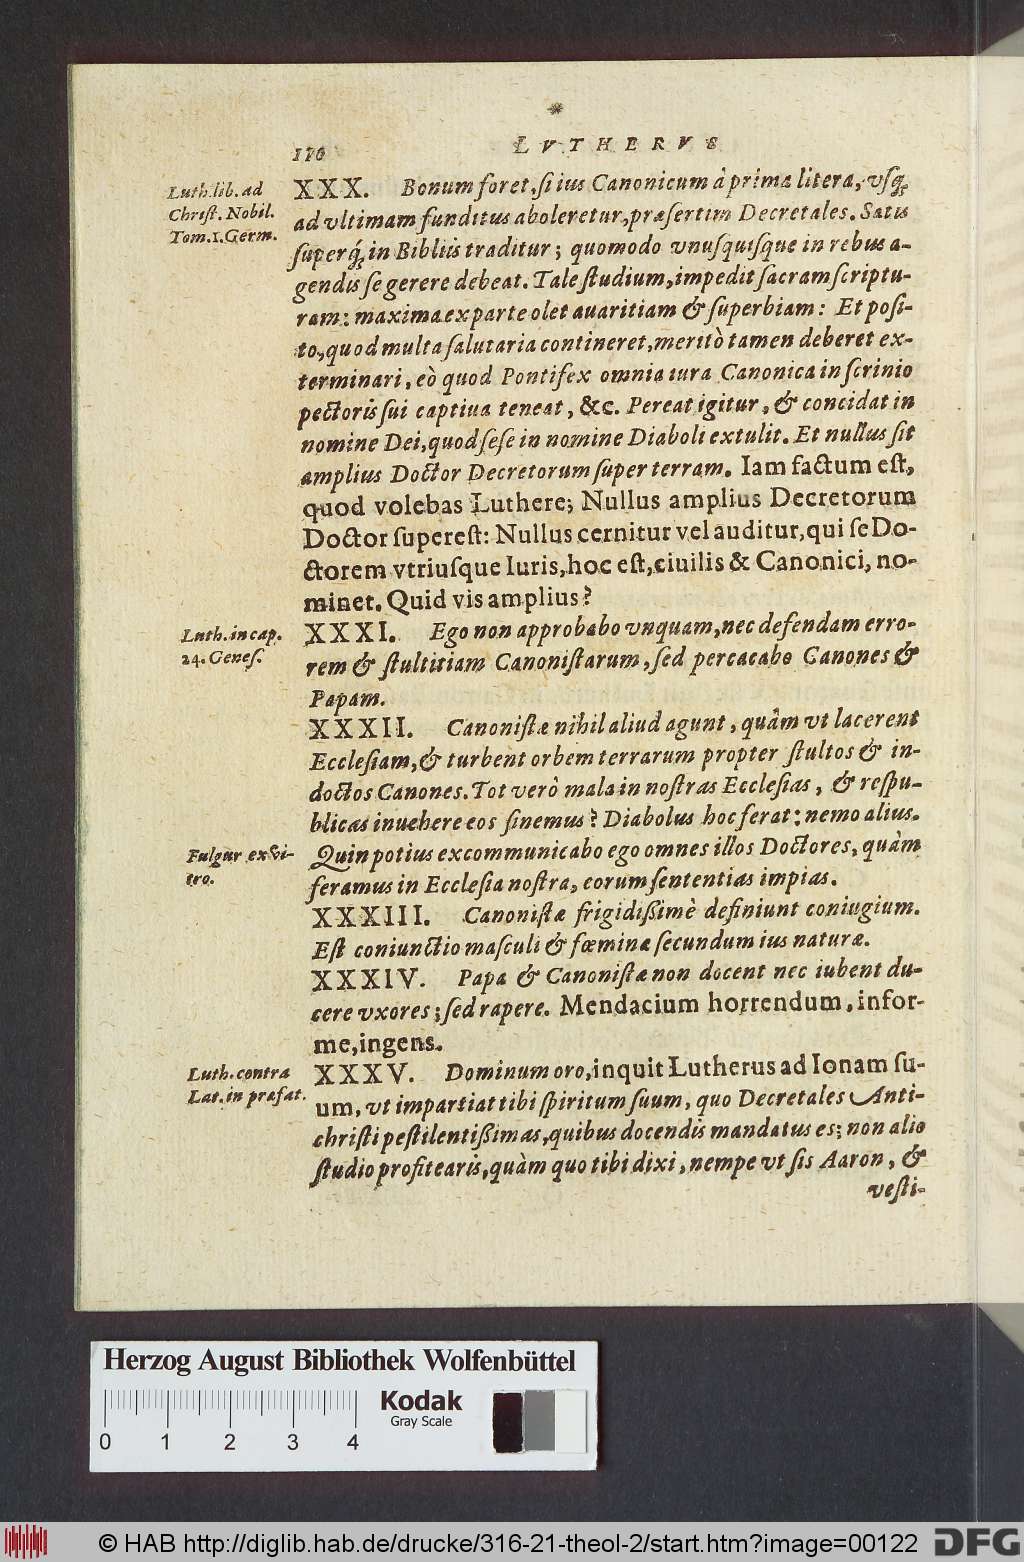 110 LVTHERVS
Luth. lib. ad
Chriſt. Nobil.
Tom. 1. Germ.
XXX. Bonum foret, ſi ius Canonicum à prima litera, vſq́;
ad vltimam funditus aboleretur, præſertim Decretales. Satis
ſuperq́; in Bibliis traditur; quomodo vnuſquiſque in rebus a-
gendis ſe gerere debeat. Tale ſtudium, impedit ſacram ſcriptu-
ram: maxima ex parte olet auaritiam & ſuperbiam: Et poſi-
to, quod multa ſalutaria contineret, meritò tamen deberet ex-
terminari, eò quod Pontifex omnia iura Canonica in ſcrinio
pectoris ſui captiua teneat, &c. Pereat igitur, & concidat in
nomine Dei, quod ſeſe in nomine Diaboli extulit. Et nullus ſit
amplius Doctor Decretorum ſuper terram. Iam factum eſt,
quod volebas Luthere; Nullus amplius Decretorum
Doctor ſupereſt: Nullus cernitur vel auditur, qui ſe Do-
ctorem vtriuſque Iuris, hoc eſt, ciuilis & Canonici, no-
minet. Quid vis amplius?
Luth. in cap.
24. Geneſ.
XXXI. Ego non approbabo vnquam, nec defendam erro-
rem & ſtultitiam Canoniſtarum, ſed percacabo Canones &
Papam.
XXXII. Canoniſtæ nihil aliud agunt, quàm vt lacerent
Eccleſiam, & turbent orbem terrarum propter ſtultos & in-
doctos Canones. Tot verò mala in noſtras Eccleſias, & reſpu-
blicas inuehere eos ſinemus? Diabolus hoc ferat: nemo alius.
Fulgur ex vi-
tro.
Quin potius excommunicabo ego omnes illos Doctores, quàm
feramus in Eccleſia noſtra, eorum ſententias impias.
XXXIII. Canoniſtæ frigidißimè definiunt coniugium.
Eſt coniunctio maſculi & fœminæ ſecundum ius naturæ.
XXXIV. Papa & Canoniſtæ non docent nec iubent du-
cere vxores; ſed rapere. Mendacium horrendum, infor-
me, ingens.
Luth. contra
Lat. in præfat.
XXXV. Dominum oro, inquit Lutherus ad Ionam ſu-
um, vt impartiat tibi ſpiritum ſuum, quo Decretales Anti-
chriſti peſtilentißimas, quibus docendis mandatus es; non alio
ſtudio profitearis, quàm quo tibi dixi, nempe vt ſis Aaron, &
veſti-
Herzog August Bibliothek Wolfenbüttel
Kodak
Gray Scale
0 1 2 3 4
© HAB http://diglib.hab.de/drucke/316-21-theol-2/start.htm?image=00122
DFG